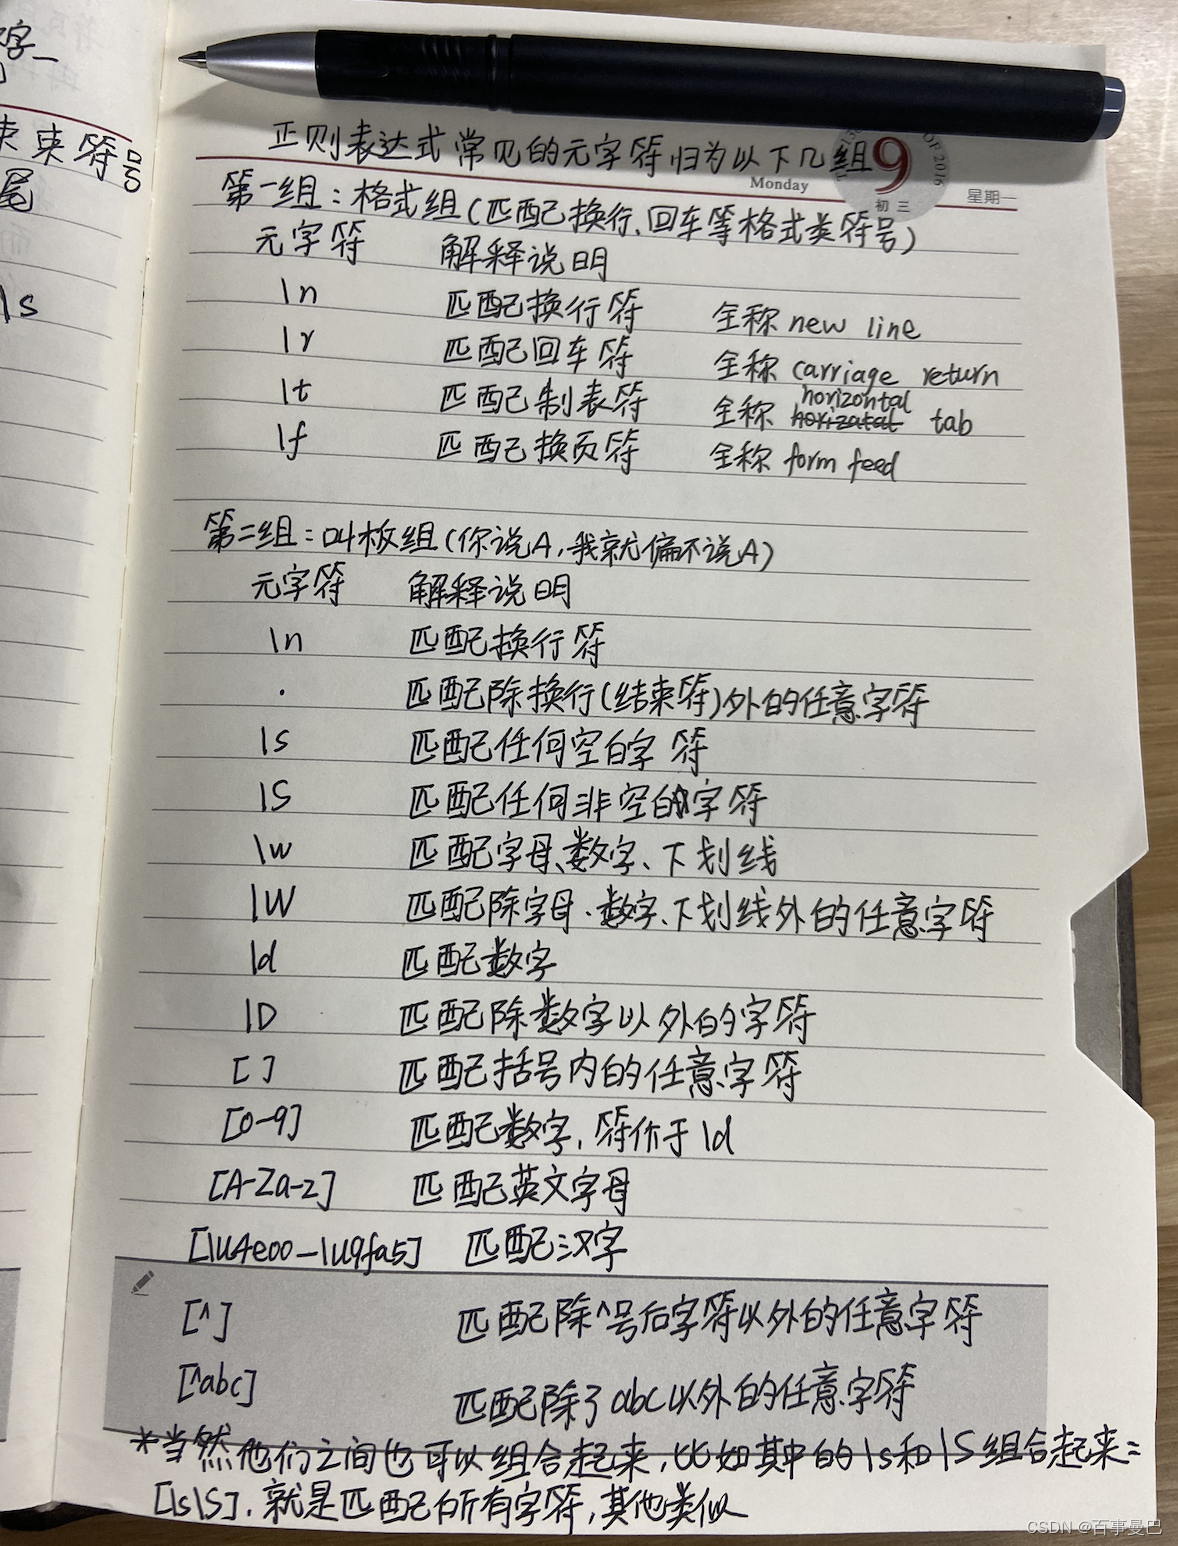 字
束束符号
尾
\s
OF 2016
正则表达式常见的元字符归为以下几组
9
Monday
初三
星期一
第一组：格式组(匹配换行、回车等格式类符号)
元字符 解释说明
\n 匹配换行符 全称 new line
\r 匹配回车符 全称 carriage return
\t 匹配制表符 全称 horizontal tab
\f 匹配换页符 全称 form feed
第二组：叫板组(你说A,我就偏不说A)
元字符 解释说明
\n 匹配换行符
. 匹配除换行(结束符)外的任意字符
\s 匹配任何空白字符
\S 匹配任何非空白字符
\w 匹配字母、数字、下划线
\W 匹配除字母、数字、下划线外的任意字符
\d 匹配数字
\D 匹配除数字以外的字符
[ ] 匹配括号内的任意字符
[0-9] 匹配数字，等价于\d
[A-Za-z] 匹配英文字母
[\u4e00-\u9fa5] 匹配汉字
[^] 匹配除^号后字符以外的任意字符
[^abc] 匹配除了abc以外的任意字符
*当然他们之间也可以组合起来，比如其中的\s和\S组合起来=
[\s\S]，就是匹配所有字符，其他类似
CSDN @百事曼巴